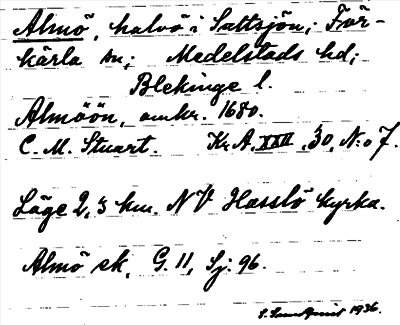 Almö, halvö i Saltsjön; För-
kärla sn; Medelstads hd;
Blekinge l.
Almöön, omkr. 1680.
C. M. Stuart. Kr. A. XXII, 30, N:o 7.
Läge 2,3 km. NV Hasslö kyrka.
Almö sk. G. 11, Sj: 96.
S. 1936.